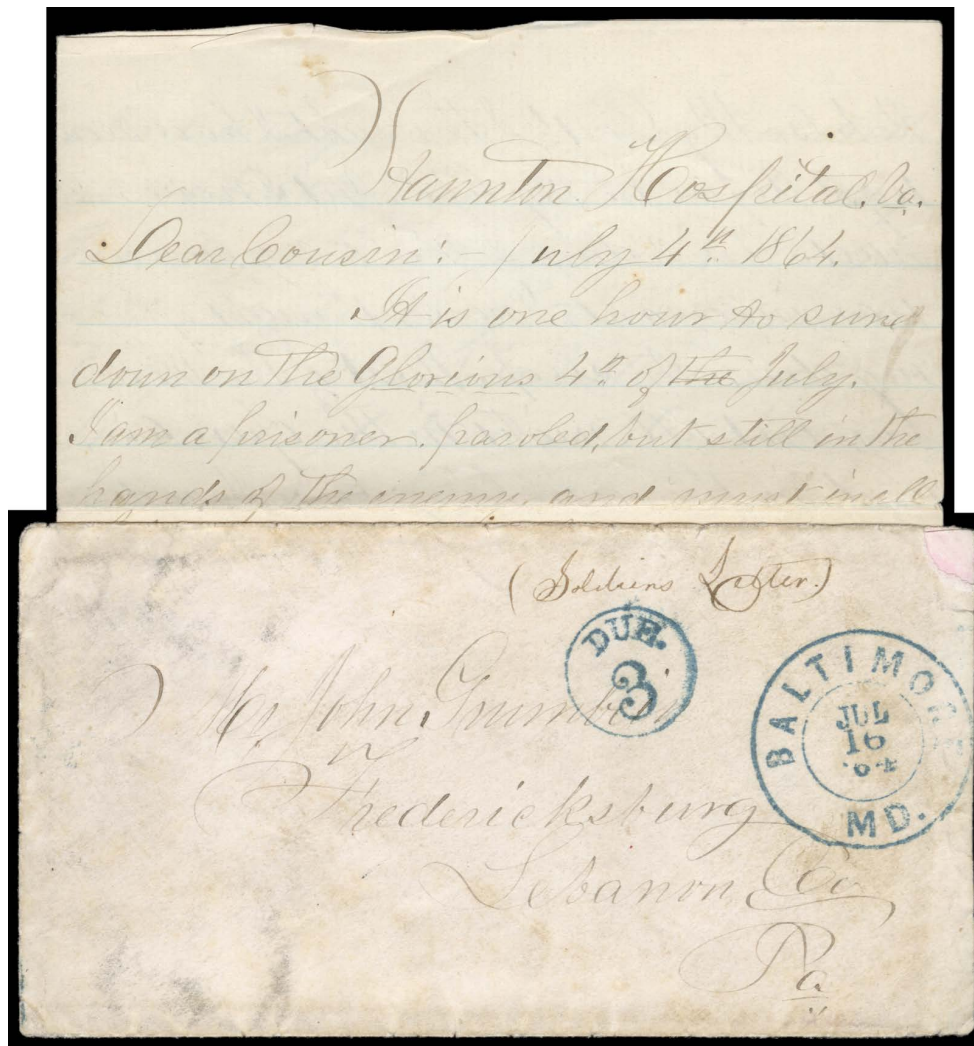 Staunton Hospital, Va.
Dear Cousin:- July 4th 1864.
It is one hour to sun
down on the Glorious 4th of the July.
I am a prisoner. paroled, but still in the
hands of the enemy, and must in all
(Soldiers Letter.)
DUE.
3
BALTIMORE
JUL
16
'64
MD.
Mr John
Fredericksburg
Lebanon, Co
Pa